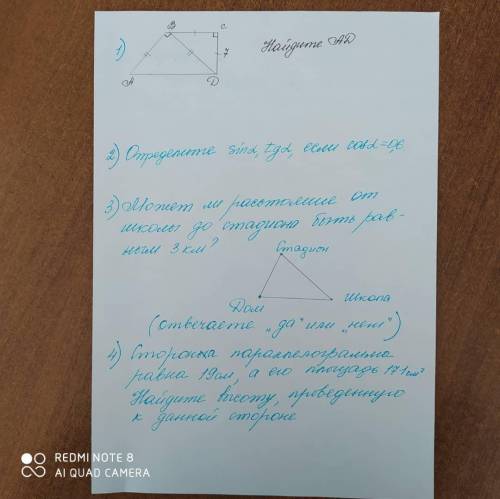 1)
B
C
7
A
D
Найдите AD
2) Определите sinα, tgα, если cosα=0,6
3) Может ли расстояние от
школы до стадиона быть рав-
ным 3 км?
Стадион
Дом
Школа
(отвечаете „да" или „нет")
4) Сторона параллелограмма
равна 19 см, а его площадь 171 см²
Найдите высоту, проведенную
к данной стороне
REDMI NOTE 8
AI QUAD CAMERA